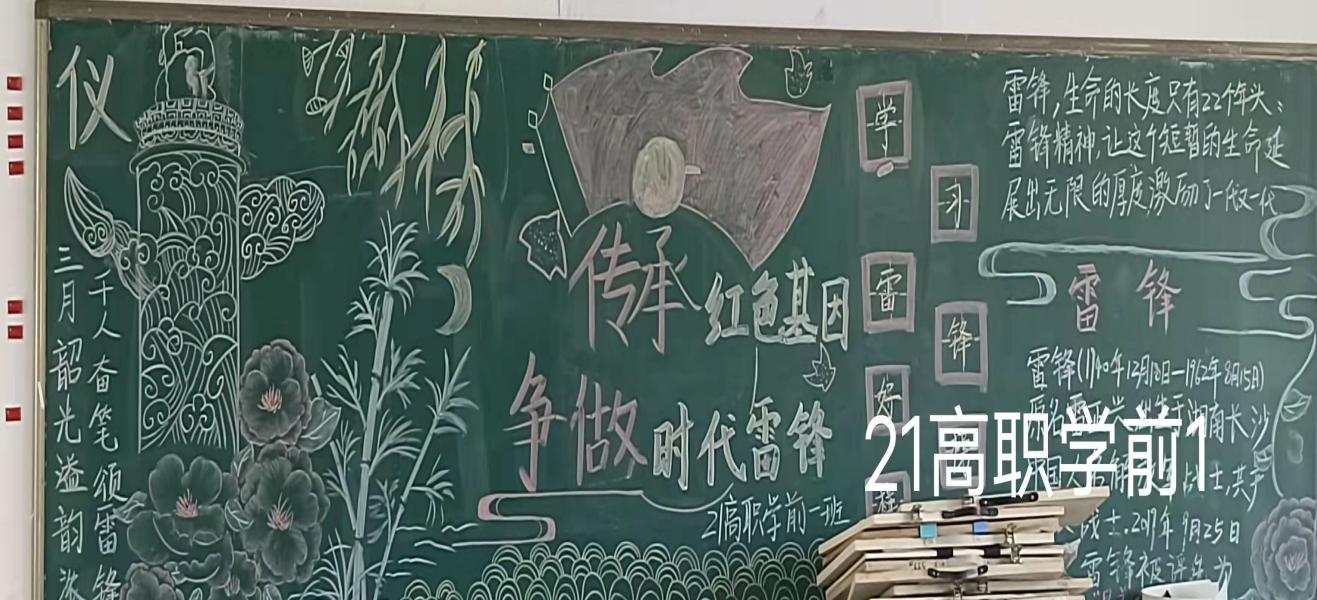 仪
三月韶光溢韵
千人奋笔颂雷锋
传承红色基因
争做时代雷锋
21高职学前一班
学
习
雷
锋
好
雷锋,生命的长度只有22个年头;
雷锋精神,让这个短暂的生命延
展出无限的厚度,激励了一代又一代
雷锋
雷锋(1940年12月18日—1962年8月15日)
湖南长沙
战士,共产
战士.2019年9月25日
雷锋被评选为
21高职学前1